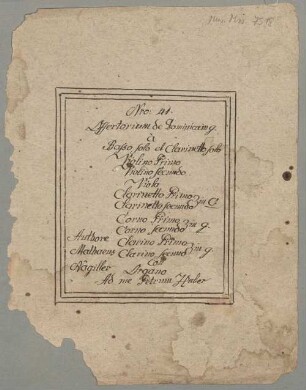 Mus. Mss. 7518
Nro: 41.
Offertorium de Dominica in g.
à
Basso solo el Clarinetto solo
Violino Primo
Violino secundo
Viola
Clarinetto Primo
Clarinetto secundo in C
Corno Primo
Corno secundo in g.
Authore Clarino Primo
Matheus Clarino secundo in g.
Nagiller Con
Organo
Ad me Petrum Huber